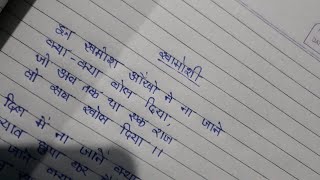 खामोशी
इन खामोश आँखो ने ना जाने
क्या-क्या बोल दिया,
जो अब तक था एक राज
वो सब खोल दिया ।।
दिल में ना जाने क्या
छुपा कर